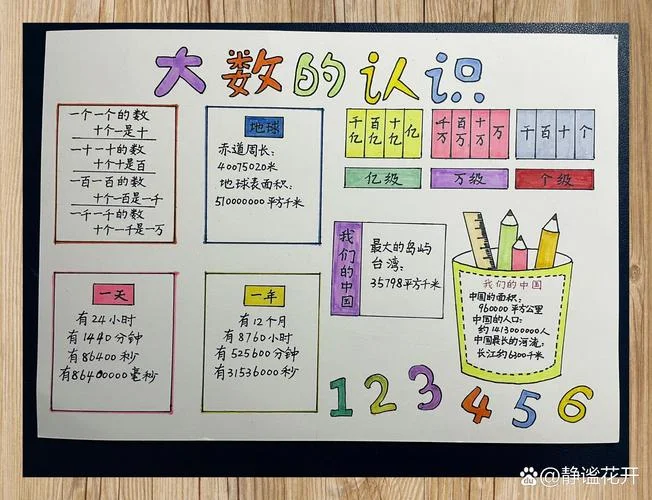 大数的认识
一个一个的数
十个一是十
一十一十的数
十个十是百
一百一百的数
十个一百是一千
一千一千的数
十个一千是一万
地球
赤道周长:
40075020米
地球表面积:
510000000平方千米
千亿 百亿 十亿 亿
千万 百万 十万 万
千 百 十 个
亿级
万级
个级
我们的中国
最大的岛屿
台湾:
35798平方千米
我们的中国
中国的面积:
960000平方公里
中国的人口:
约1413000000人
中国最长的河流:
长江约6300千米
一天
有24小时
有1440分钟
有86400秒
有86400000毫秒
一年
有12个月
有8760小时
有525600分钟
有31536000秒
1 2 3 4 5 6
Baidu @静谧花开